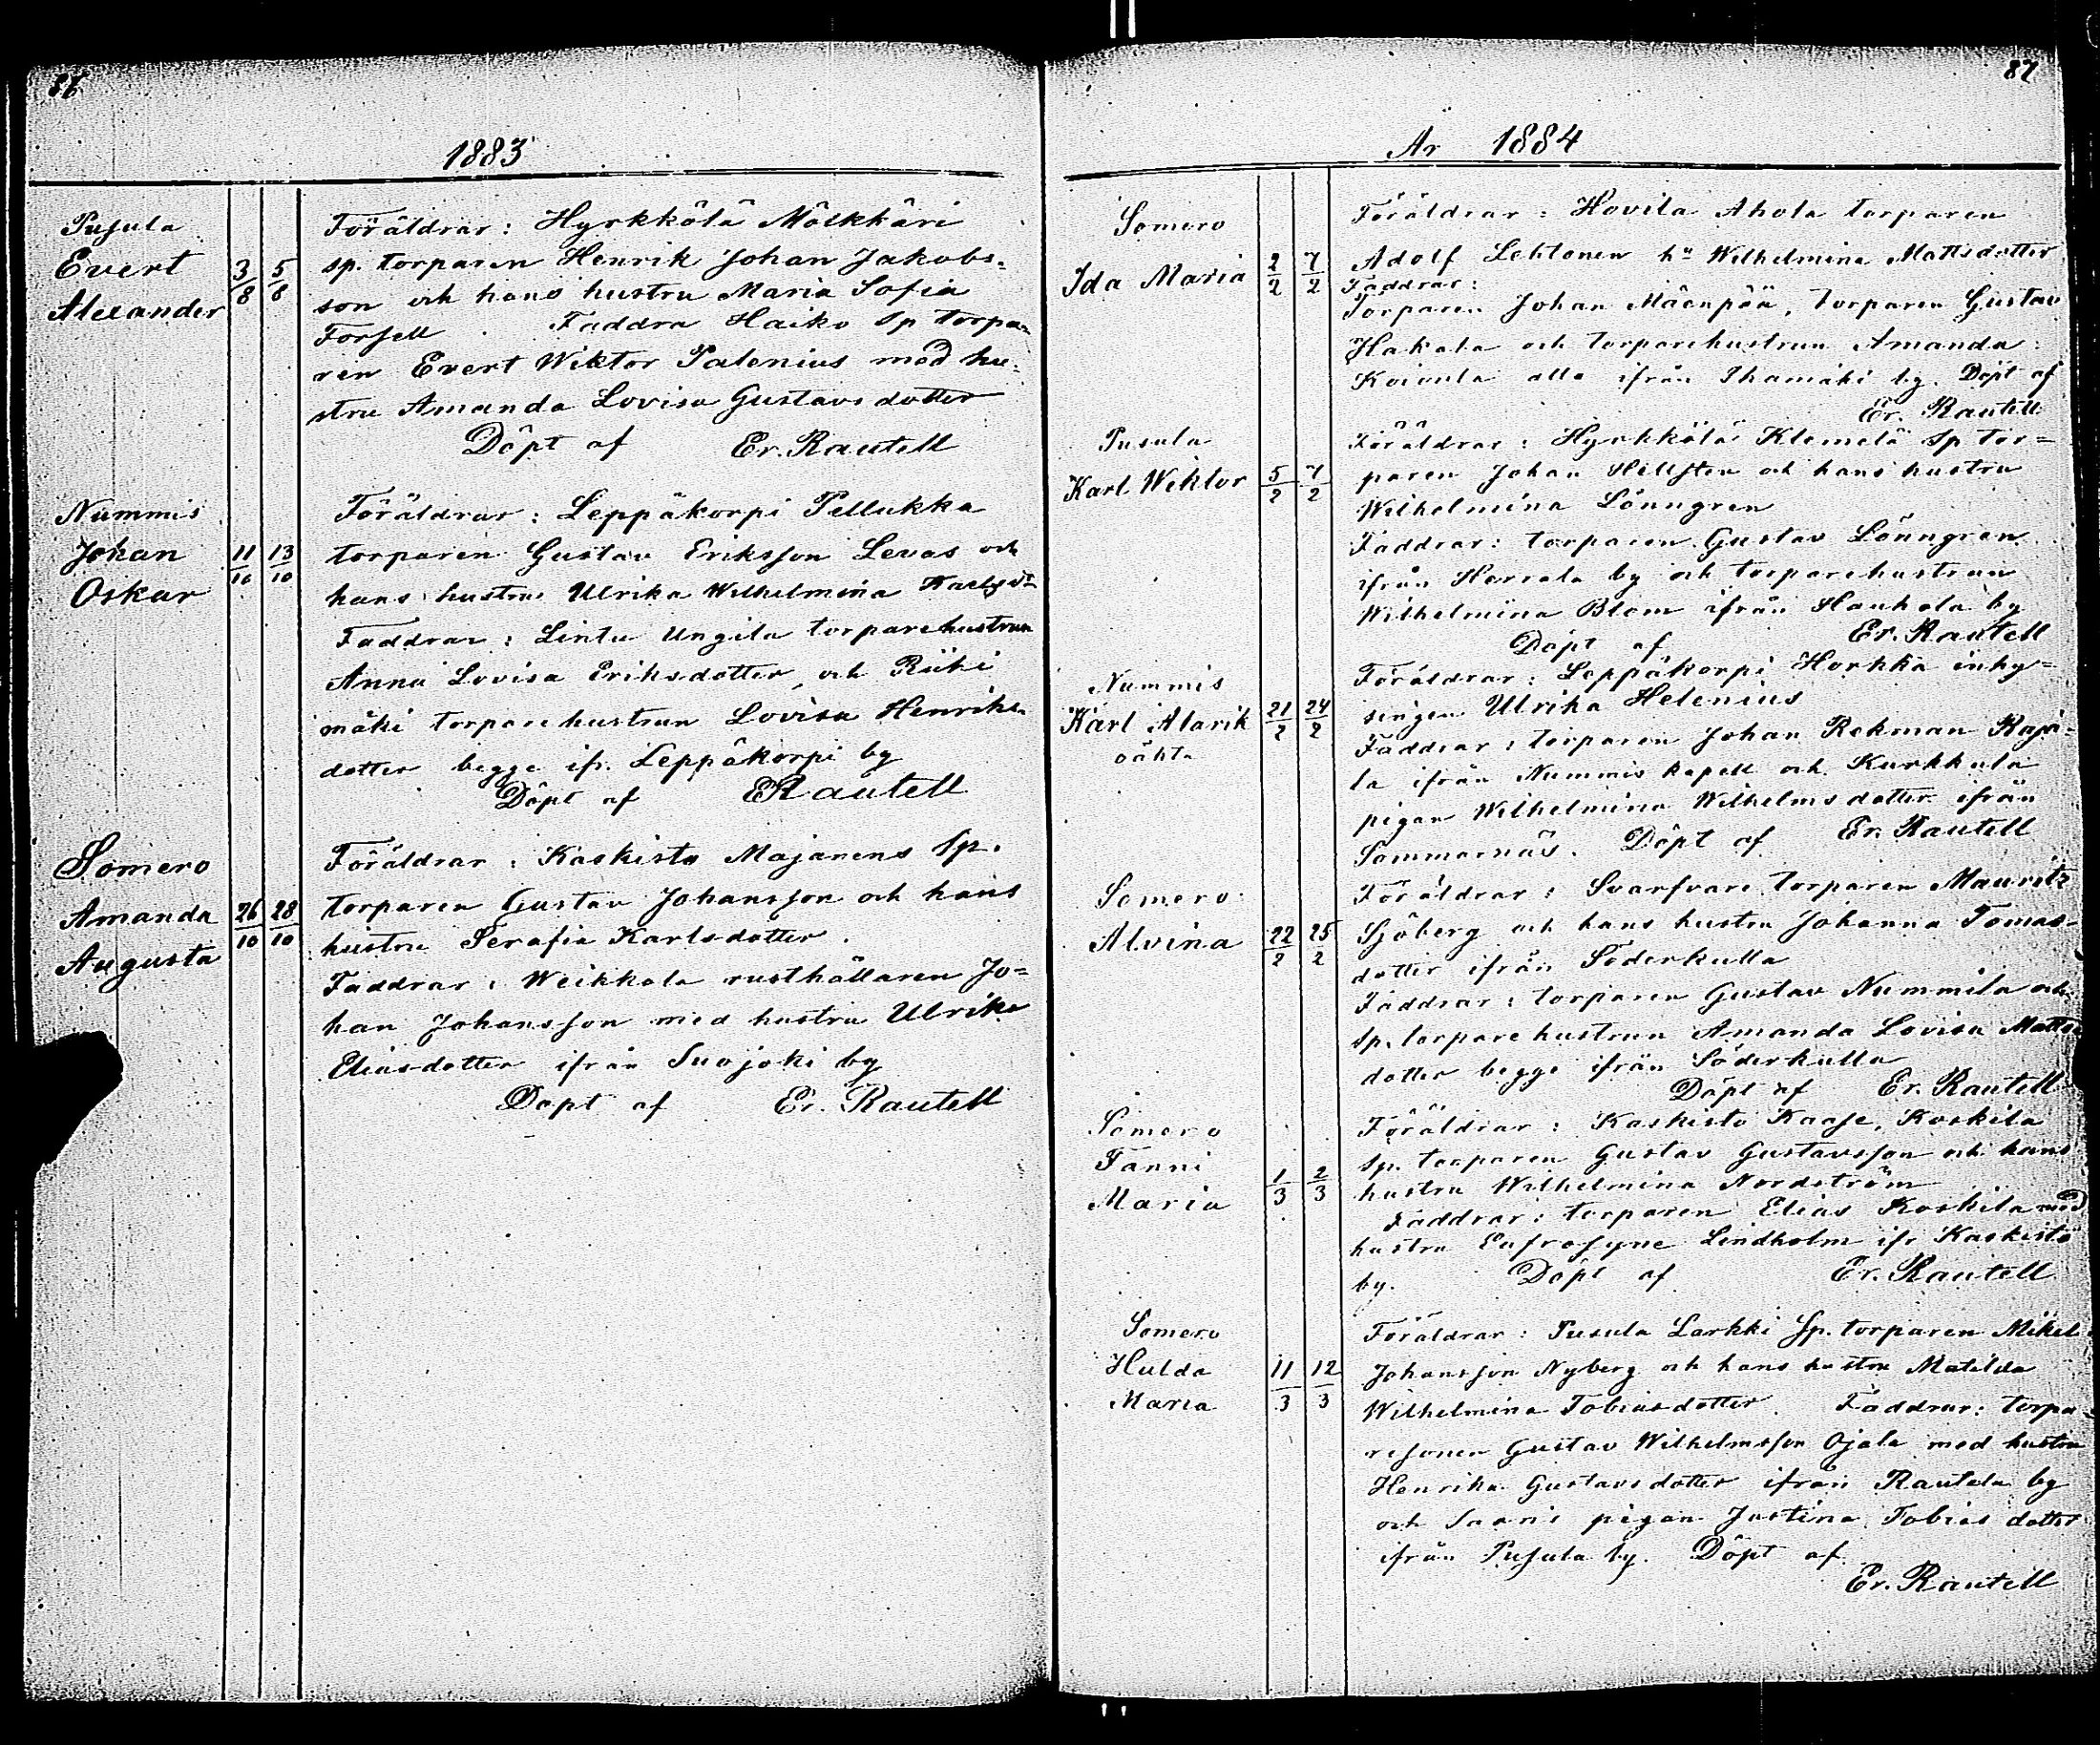 86
1883
Pusula
Evert
Alexander
3/8 5/8
Föräldrar: Hyrkkölä Mölkkäri
sp. torparen Henrik Johan Jakobs=
son och hans hustru Maria Sofia
Forsell Faddra Haiko Sp torpa=
ren Evert Wiktor Palenius med hu=
stru Amanda Lovisa Gustavsdotter
Döpt af Er. Rautell
Nummis
Johan
Oskar
11/10 13/10
Föräldrar: Leppäkorpi Pellukka
torparen Gustav Eriksson Levas och
hans hustru Ulrika Wilhelmina Karlsdr
Faddrar: Lintu Ungila torparehustrun
Anna Lovisa Eriksdotter, och Riihi
mäki torparehustrun Lovisa Henriks=
dotter begge ifr. Leppäkorpi by
Döpt af ERautell
Somero
Amanda
Augusta
26/10 28/10
Föräldrar: Kaskisto Majanens Sp.
torparen Gustav Johansson och hans
hustru Serafia Karlsdotter.
Faddrar: Weikkola rusthållaren Jo=
han Johansson med hustru Ulrika
Eliasdotter ifrån Suojoki by
Döpt af Er. Rautell
87
År 1884
Somero
Ida Maria
2/2 7/2
Föräldrar: Hovila Ahola torparen
Adolf Lehtonen hu Wilhelmina Mattsdotter
Faddrar:
Torparen Johan Mäenpää, torparen Gustav
Hakala och torparehustrun Amanda
Koivula alla ifrån Ihamäki by. Döpt af
Er. Rautell
Pusula
Karl Wiktor
5/2 7/2
Föräldrar: Hyrkkölä Klemelä Sp tor=
paren Johan Hellsten och hans hustru
Wilhelmina Lönngren
Faddrar: torparen Gustav Lönngren
ifrån Herrala by och torparehustrun
Wilhelmina Blom ifrån Hauhola by
Döpt af Er. Rautell
Nummis
Karl Alarik
oäkta
21/2 24/2
Föräldrar: Leppäkorpi Horkka inhy=
singen Ulrika Helenius
Faddrar: torparen Johan Rekman Raja=
la ifrån Nummis kapell och Kurkkula
pigan Wilhelmina Wilhelmsdotter ifrån
Sommarnäs. Döpt af Er. Rautell
Somero
Alvina
22/2 25/2
Föräldrar: Svarfvare torparen Mauritz
Sjöberg och hans hustru Johanna Tomas=
dotter ifrån Söderkulla
Faddrar: torparen Gustav Nummila och
sp. torparehustrun Amanda Lovisa Matts=
dotter begge ifrån Söderkulla
Döpt af Er. Rautell
Somero
Fanni
Maria
1/3 2/3
Föräldrar: Kaskisto Kaase, Koskila
sp. torparen Gustav Gustavsson och hans
hustru Wilhelmina Nordström
Faddrar: torparen Elias Koskila med
hustru Eufrosyne Lindholm ifr Kaskisto
by. Döpt af Er. Rautell
Somero
Hulda
Maria
11/3 12/3
Föräldrar: Pusula Larkki Sp. torparen Mikel
Johansson Nyberg och hans hustru Matilda
Wilhelmina Tobiasdotter. Faddrar: torpa=
resonen Gustav Wilhelmsson Ojala med hustru
Henrika Gustavsdotter ifrån Rautela by
och Saaris pigan Justina Tobias dotter
ifrån Pusula by. Döpt af
Er. Rautell